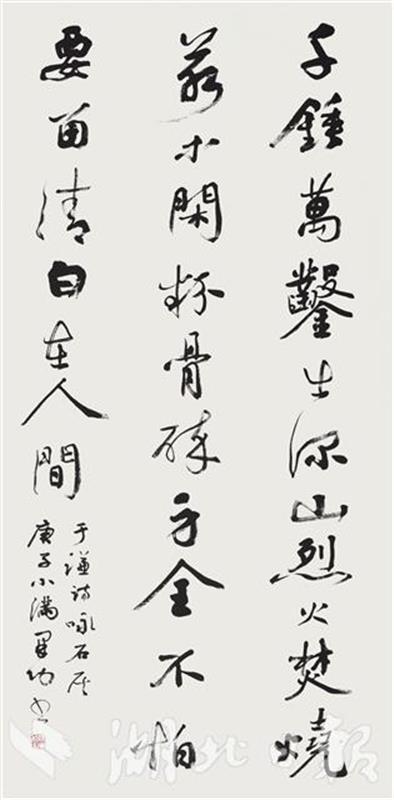 千錘萬鑿出深山烈火焚燒
若等閑粉骨碎身全不怕
要留清白在人間
于謙詩咏石灰
庚子小滿书
湖北日报